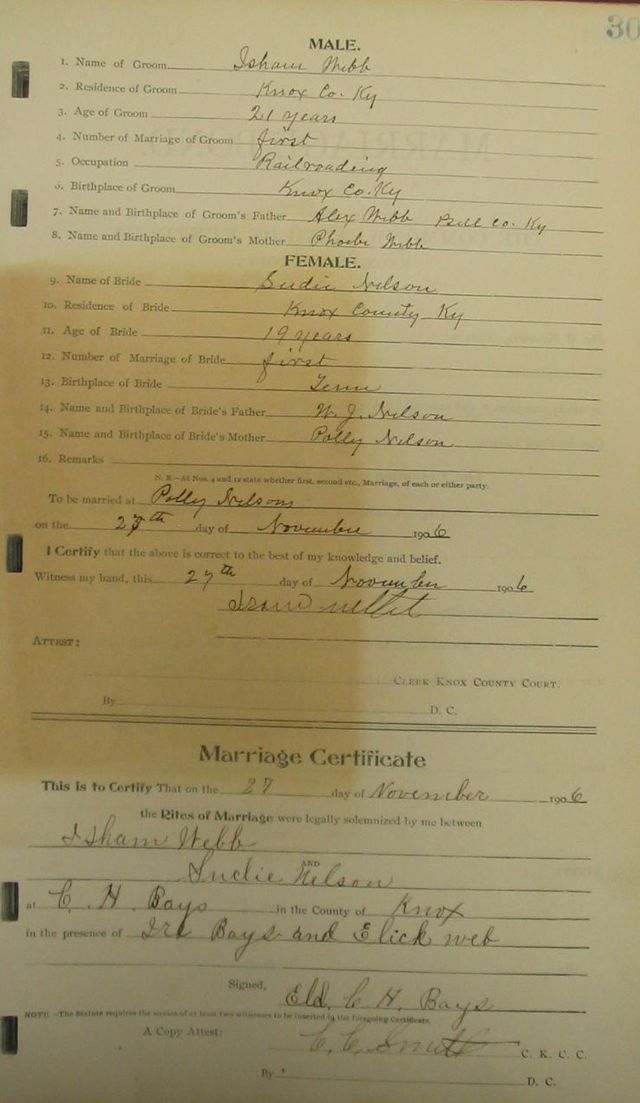 30
MALE.
1. Name of Groom Isham Webb
2. Residence of Groom Knox Co. Ky
3. Age of Groom 21 years
4. Number of Marriage of Groom first
5. Occupation Railroading
6. Birthplace of Groom Knox Co. Ky
7. Name and Birthplace of Groom's Father Alex Webb Bell Co. Ky
8. Name and Birthplace of Groom's Mother Phoebe Webb
FEMALE.
9. Name of Bride Sudie Nelson
10. Residence of Bride Knox County Ky
11. Age of Bride 19 years
12. Number of Marriage of Bride first
13. Birthplace of Bride Tenn
14. Name and Birthplace of Bride's Father W. J. Nelson
15. Name and Birthplace of Bride's Mother Polly Nelson
16. Remarks
N. B.—At Nos. 4 and 12 state whether first, second etc., Marriage, of each or either party.
To be married at Polly Nelsons
on the 27th day of November 1906
I Certify that the above is correct to the best of my knowledge and belief.
Witness my hand, this 27th day of November 1906
ATTEST:
CLERK KNOX COUNTY COURT.
By D. C.
Marriage Certificate
This is to Certify That on the 27 day of November 1906
the Rites of Marriage were legally solemnized by me between
Isham Webb
AND
Sudie Nelson
at C. H. Bays in the County of Knox
in the presence of Ira Bays and Elick web
Signed,
Eld. C. H. Bays
NOTE—The Statute requires the names of at least two witnesses to be inserted in the foregoing Certificate.
A Copy Attest: C. C. Smith C. K. C. C.
By D. C.